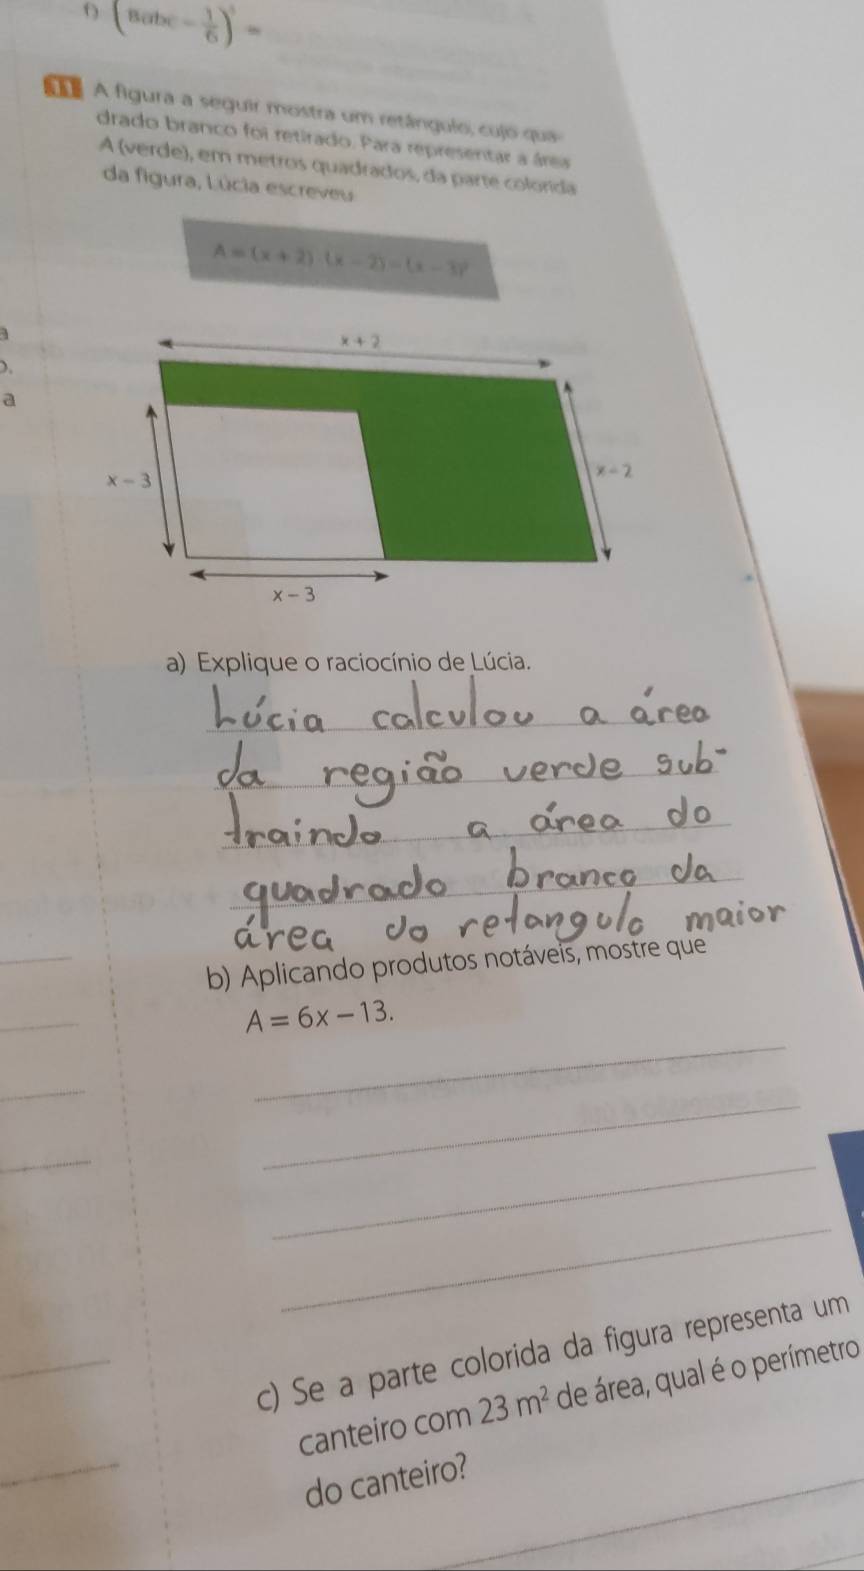 f) (8abc - 1/6)² =
11 A figura a seguir mostra um retângulo, cujo qua-
drado branco foi retirado. Para representar a área
A (verde), em metros quadrados, da parte colorida
da figura, Lúcia escreveu
A = (x + 2) · (x - 2) - (x - 3)²
a
x + 2
o.
a
x - 3
x - 2
x - 3
a) Explique o raciocínio de Lúcia.
Lúcia calculou a área
da região verde sub-
traindo a área do
quadrado branco da
área do retangulo maior
b) Aplicando produtos notáveis, mostre que
A = 6x - 13.
c) Se a parte colorida da figura representa um
canteiro com 23 m² de área, qual é o perímetro
do canteiro?